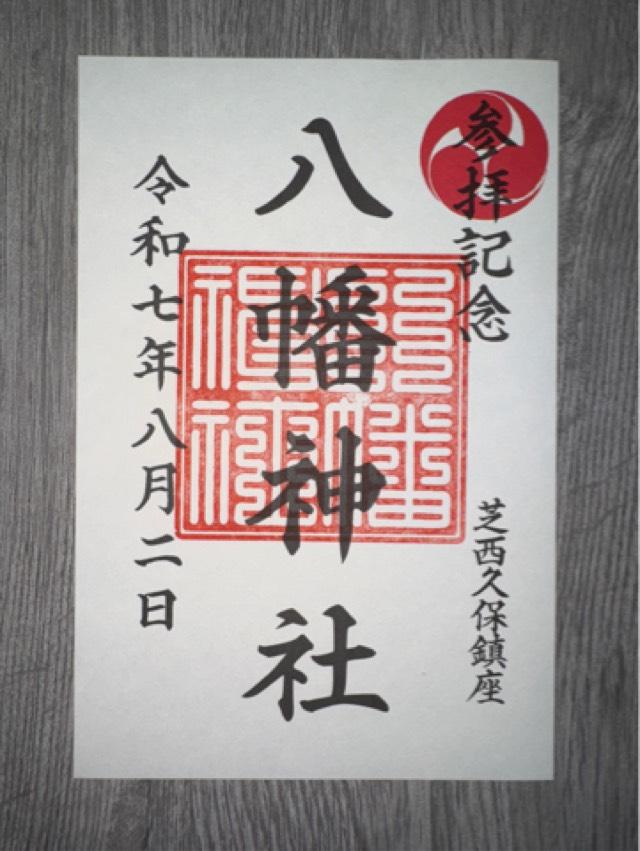 参拝記念
芝西久保鎮座
八幡神社
令和七年八月二日